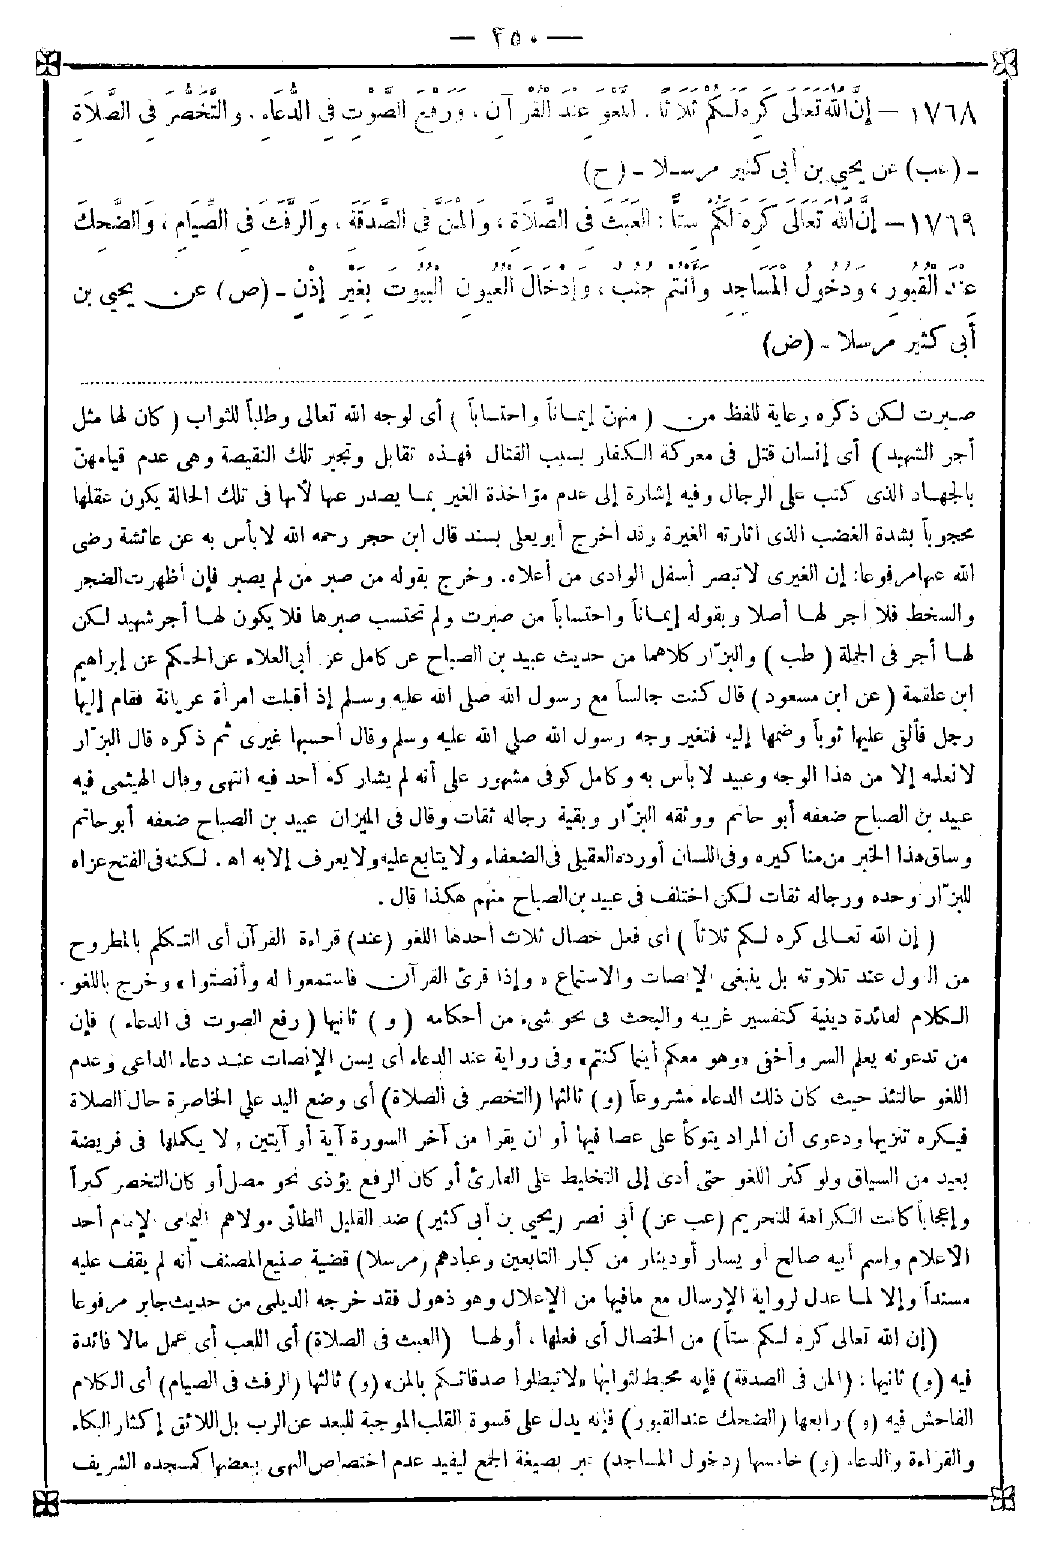 — ٢٥٠ —
١٧٦٨ - إِنَّ اللهَ تَعَالَى كَرِهَ لَكُمْ ثَلَاثًا : اللَّغْوَ عِنْدَ القُرْآنِ ، وَرَفْعَ الصَّوْتِ فِي الدُّعَاءِ ، وَالتَّخَصُّرَ فِي الصَّلَاةِ
- (عب) عن يحيي بن أبى كثير مرسلا - (ح)
١٧٦٩ - إِنَّ اللهَ تَعَالَى كَرِهَ لَكُمْ سِتًّا : العَبَثَ فِي الصَّلَاةِ ، وَالمَنَّ فِي الصَّدَقَةِ ، وَالرَّفَثَ فِي الصِّيَامِ ، وَالضَّحِكَ
عِنْدَ القُبُورِ ، وَدُخُولُ المَسَاجِدِ وَأَنْتُمْ جُنُبٌ ، وَإِدْخَالُ العُيُونِ البُيُوتَ بِغَيْرِ إِذْنٍ - (ص) عن يحيي بن
أبى كثير مرسلا - (ض)
صبرت لكن ذكره رعاية للفظ من (منهن إيماناً واحتساباً) أى لوجه الله تعالى وطلباً للثواب (كان لها مثل
أجر الشهيد) أى إنسان قتل فى معركة الكفار بسبب القتال فهذه تقابل وتجبر تلك النقيصة وهى عدم قيامهن
بالجهاد الذى كتب على الرجال وفيه إشارة إلى عدم مؤاخذة الغير بما يصدر عنها لأنها فى تلك الحالة يكون عقلها
محجوباً بشدة الغضب الذى أثارته الغيرة وقد أخرج أبو يعلى بسند قال ابن حجر رحمه الله لابأس به عن عائشة رضى
الله عنها مرفوعا: إن الغيرى لاتبصر أسفل الوادى من أعلاه. وخرج بقوله من صبر من لم يصبر فإن أظهرت الضجر
والسخط فلا أجر لها أصلا وبقوله إيماناً واحتساباً من صبرت ولم تحتسب صبرها فلا يكون لها أجر شهيد لكن
لها أجر فى الجملة (طب) والبزّار كلاهما من حديث عبيد بن الصباح عن كامل عن أبى العلاء عن الحكم عن إبراهيم
ابن علقمة (عن ابن مسعود) قال كنت جالساً مع رسول الله صلى الله عليه وسلم إذ أقبلت امرأة عريانة فقام إليها
رجل فألقى عليها ثوباً وضمها إليه فتغير وجه رسول الله صلي الله عليه وسلم وقال أحسبها غيرى ثم ذكره قال البزّار
لانعلمه إلا من هذا الوجه وعبيد لابأس به وكامل كوفى مشهور على أنه لم يشاركه أحد فيه انتهى وقال الهيثمى فيه
عبيد بن الصباح ضعفه أبو حاتم ووثقه البزّار وبقية رجاله ثقات وقال فى الميزان عبيد بن الصباح ضعفه أبو حاتم
وساق هذا الخبر من مناكيره وفى اللسان أورده العقيلى فى الضعفاء ولا يتابع عليه ولا يعرف إلا به اه . لكنه فى الفتح عزاه
للبزّار وحده ورجاله ثقات لكن اختلف فى عبيد بن الصباح منهم هكذا قال .
(إن الله تعالى كره لكم ثلاثاً) أى فعل خصال ثلاث أحدها اللغو (عند) قراءة القرآن أى التكلم بالمطروح
من القول عند تلاوته بل ينبغى الإنصات والاستماع «وإذا قرئ القرآن فاستمعوا له وأنصتوا» وخرج باللغو
الكلام لفائدة دينية كتفسير غريبه والبحث فى نحو شىء من أحكامه (و) ثانيها (رفع الصوت فى الدعاء) فإن
من تدعونه يعلم السر وأخفى «وهو معكم أينما كنتم» وفى رواية عند الدعاء أى يسن الإنصات عند دعاء الداعى وعدم
اللغو حالتئذ حيث كان ذلك الدعاء مشروعاً (و) ثالثها (التخصر فى الصلاة) أى وضع اليد علي الخاصرة حال الصلاة
فيكره تنزيها ودعوى أن المراد يتوكأ على عصا فيها أو ان يقرا من آخر السورة آية أو آيتين ، لا يكملها فى فريضة
بعيد من السياق ولو كثر اللغو حتى أدى إلى التخليط على القارئ أو كان الرفع يؤذى نحو مصل أو كان التخصر كبراً
وإعجاباً كانت الكراهة للتحريم (عب عن) أبى نصر (يحيي بن أبى كثير) ضد القليل الطائى مولاهم اليمامى الإمام أحد
الاعلام واسم أبيه صالح أو يسار أو دينار من كبار التابعين وعبادهم (مرسلا) قضية صنيع المصنف أنه لم يقف عليه
مسنداً وإلا لما عدل لرواية الإرسال مع مافيها من الإعلال وهو ذهول فقد خرجه الديلمى من حديث جابر مرفوعا
(إن الله تعالى كره لكم ستاً) من الخصال أى فعلها ، أولها (العبث فى الصلاة) أى اللعب أى عمل مالا فائدة
فيه (و) ثانيها : (المن فى الصدقة) فإنه محبط لثوابها «لاتبطلوا صدقاتكم بالمن» (و) ثالثها (الرفث فى الصيام) أى الكلام
الفاحش فيه (و) رابعها (الضحك عند القبور) فإنه يدل على قسوة القلب الموجبة للبعد عن الرب بل اللائق إكثار البكاء
والقراءة والدعاء (و) خامسها (دخول المساجد) عبر بصيغة الجمع ليفيد عدم اختصاص النهى ببعضها كمسجده الشريف